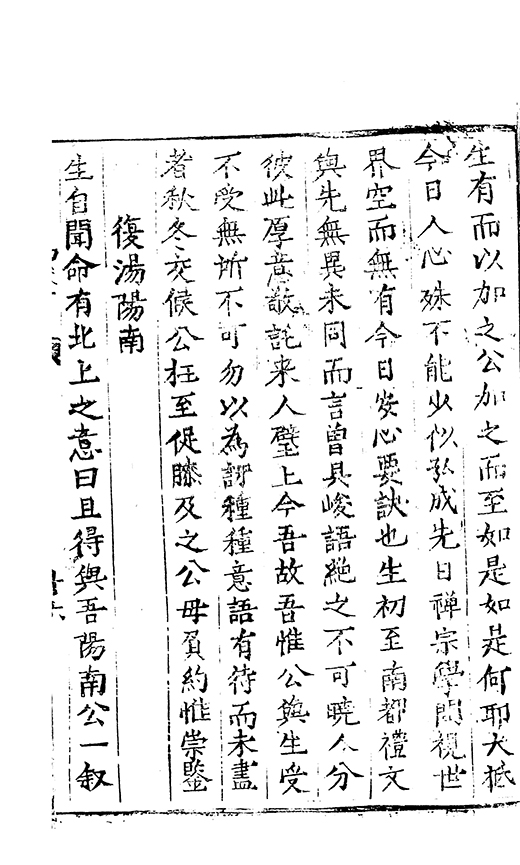 生有而以加之公加之而至如是如是何耶大抵
今日人心殊不能少似弘成先日禅宗學問視世
界空而無有今日安心要訣也生初至南都禮文
與先無異未同而言曾具峻語絶之不可曉人分
彼此厚意敬託来人璧上今吾故吾惟公與生受
不受無所不可勿以為訝種種意語有待而未盡
者秋冬交候公枉至促膝及之公毋負約惟崇鑒
復湯陽南
生自聞命有北上之意曰且得與吾陽南公一叙